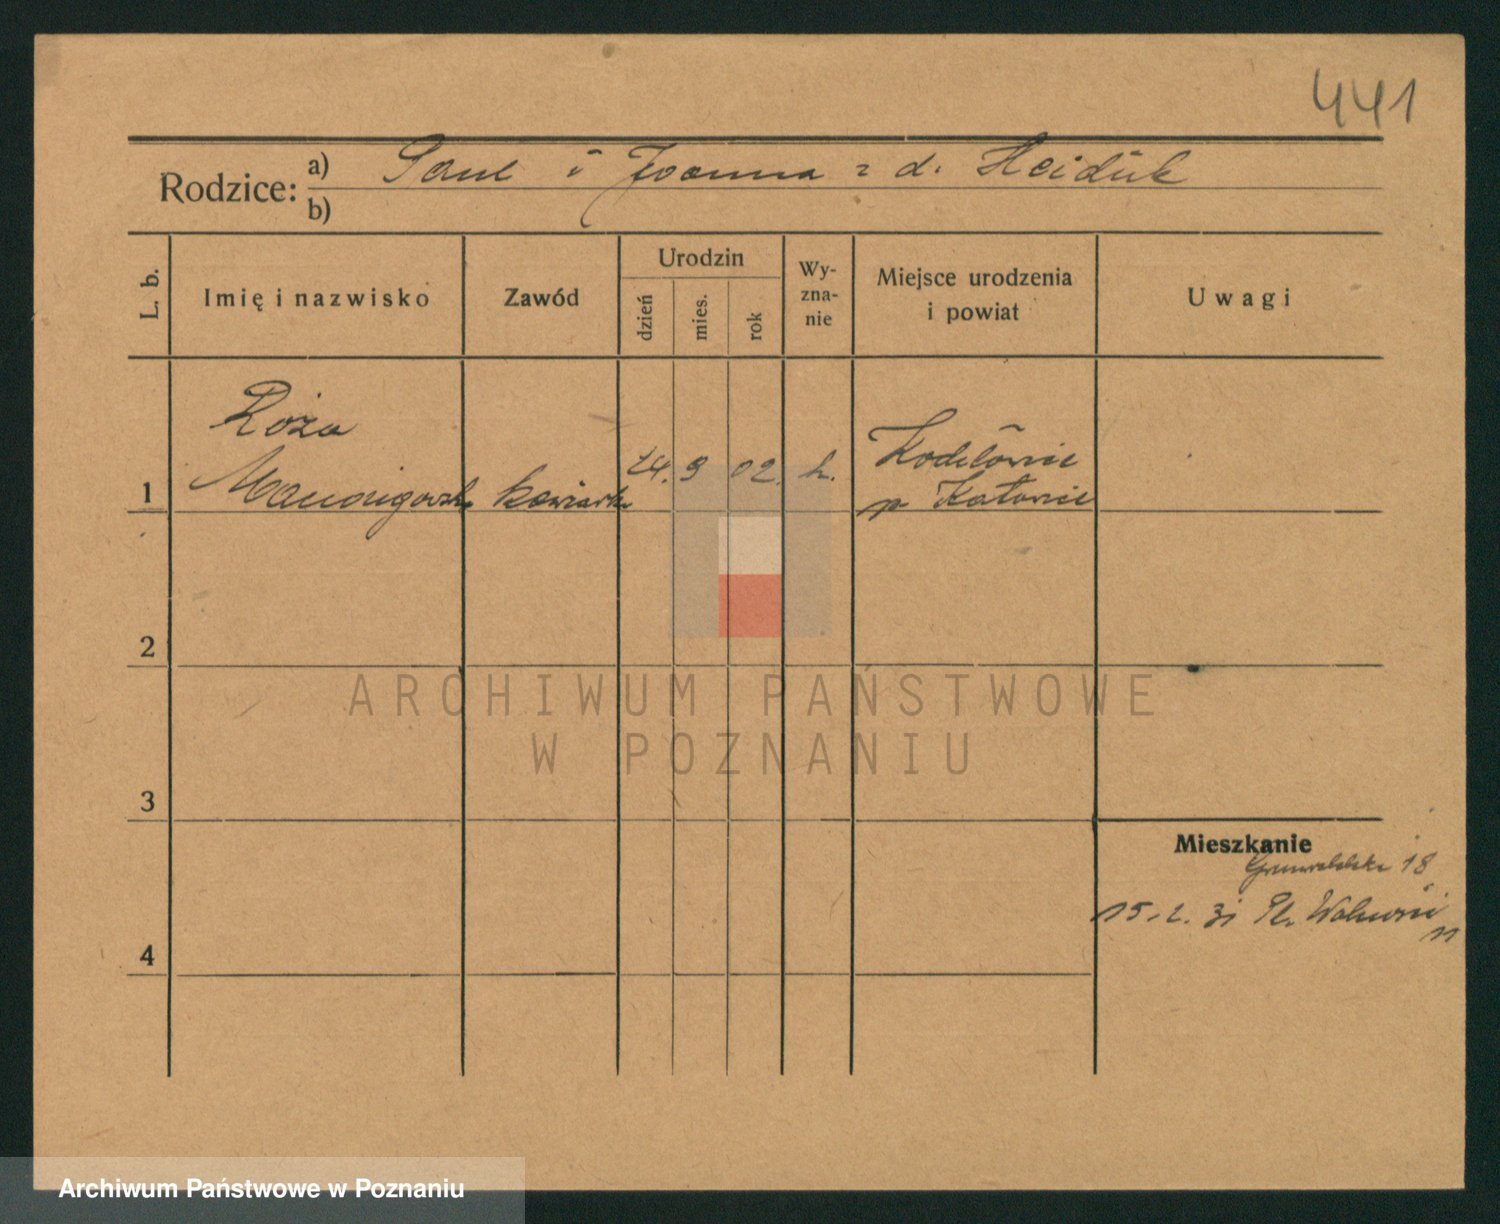 441
Rodzice: a) Paul i Joanna z d. Heiduk
b)
L. b.
Imię i nazwisko
Zawód
Urodzin
dzień
mies.
rok
Wy-
zna-
nie
Miejsce urodzenia
i powiat
Uwagi
Róża
1
14. 9 02. k.
p. Katowic
2
ARCHIWUM PAŃSTWOWE
W POZNANIU
3
Mieszkanie
Grunwaldzka 18
15. 2. 31 Pl. Wolności
11
4
Archiwum Państwowe w Poznaniu